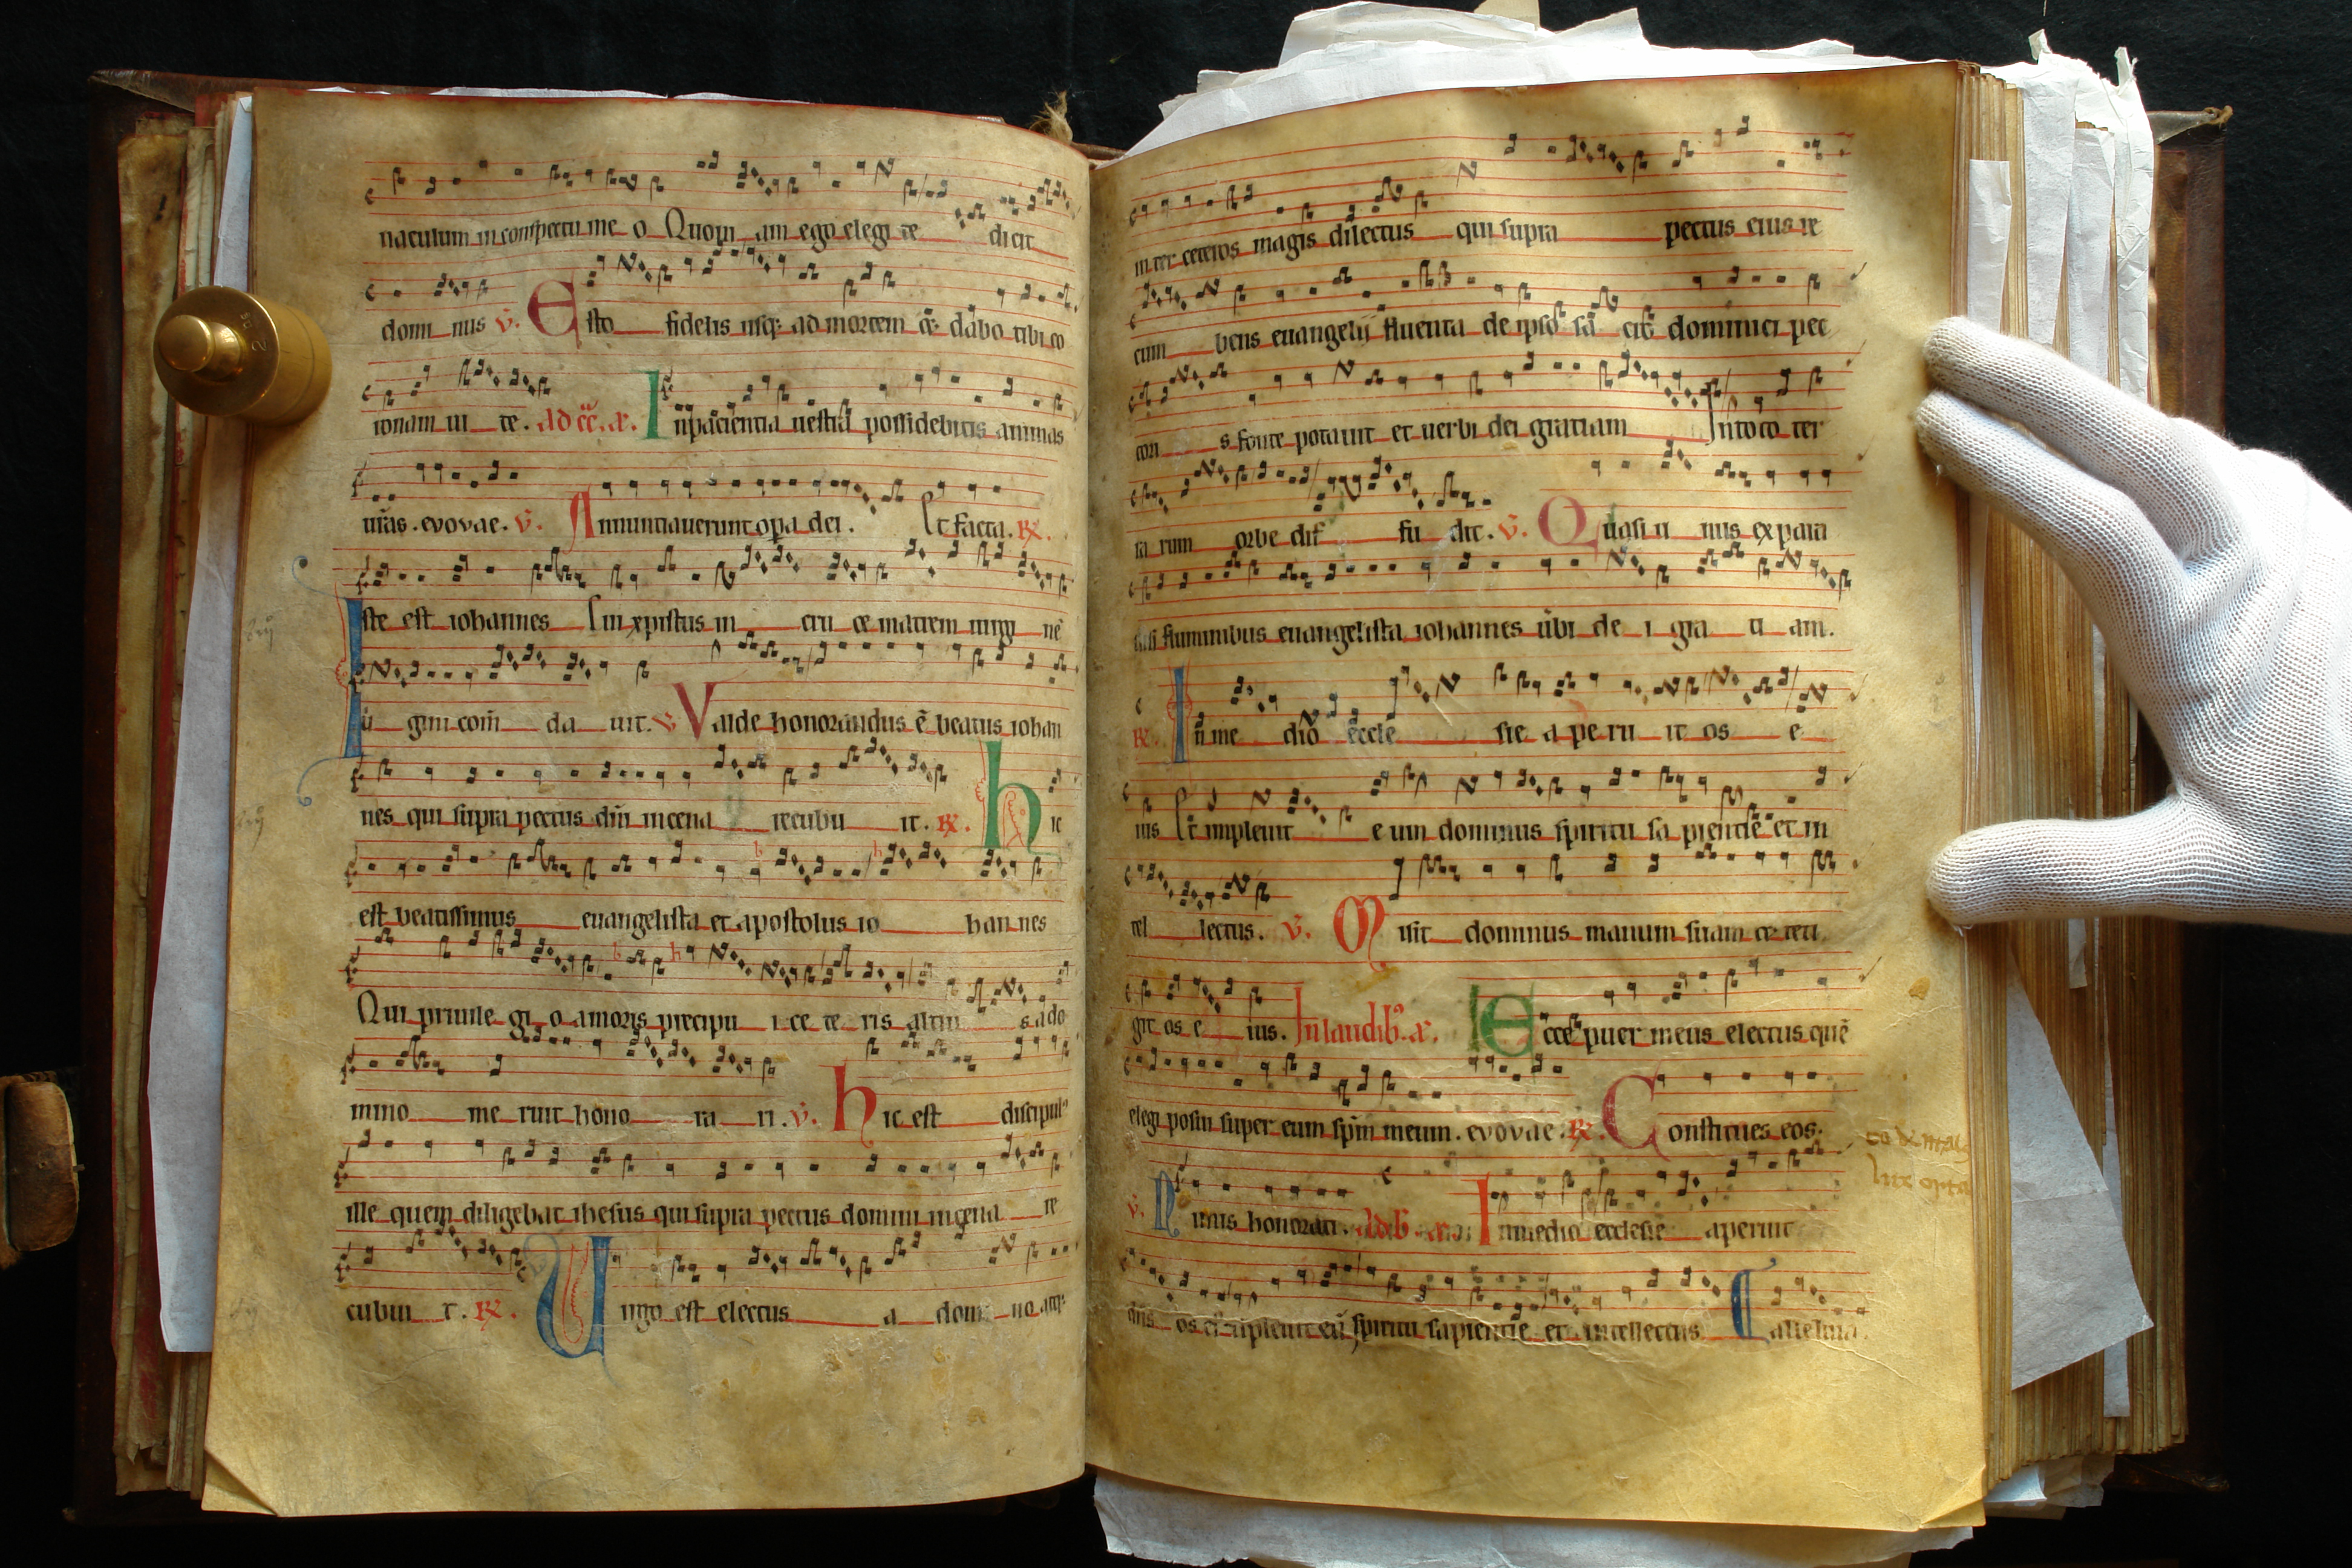 naculum in conspectu me o Quoni am ego elegi te dicit
domi nus v. Esto fidelis usq; ad mortem dabo tibi co
ronam vi te. In paciencia vestra possidebitis animas
vras. evovae. v. Annuntiaverunt opa dei. Et facta. R.
Iste est iohannes Cui xpistus in cru ce matrem virgi nē
vi gini com̄ da vit. v. Valde honorandus ē beatus iohan
nes qui supra pectus dn̄i in cena recubu it. R. hic
est beatissimus euangelista et apostolus io han nes
Qui privile gi o amoris precipu i ce te ris altiu s a do
mino me ruit hono ra ri. v. hic est discipulꝰ
ille quem diligebat ihesus qui supra pectus domini in cena re
cubu t. R. Virgo est electus a domi no atq;
inter ceteros magis dilectus qui supra pectus eius re
cum bens euangelij fluenta de ipso sa cro dominici pec
tori s fonte potavit et verbi dei gratiam In toto ter
ra rum orbe dif fu dit. v. Quasi u nus ex para
disi fluminibus euangelista iohannes v̄bi de i gra ti am.
R. In me dio eccle sie a pe ru it os e
ius Et implevit e um dominus spiritu sa pientie et in
tel lectus. v. Misit dominus manum suam et teti
git os e ius. In laudibꝰ. a. Ecce puer meus electus quē
elegi posui super eum spm̄ meum. evovae. R. Constitues eos.
v. Nimis honorati. In medio ecclesie aperuit
dn̄s os ei implevit eū spiritu sapientie et intellectus alleluia.